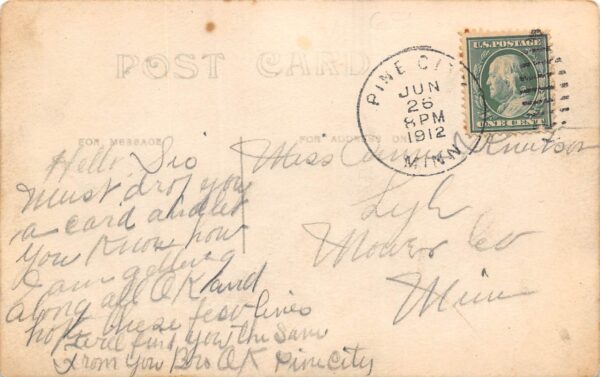 POST CARD
U.S. POSTAGE
ONE CENT
PINE CITY
JUN
26
8 PM
1912
MINN
FOR MESSAGE
FOR ADDRESS ONLY
Hello Sis
Must drop you
a card and let
you Know how
I am getting
along all OK and
hope these few lines
will find you the Same
From You Bro OK Pine City
Miss Knutson
Lyle
Mower Co
Minn